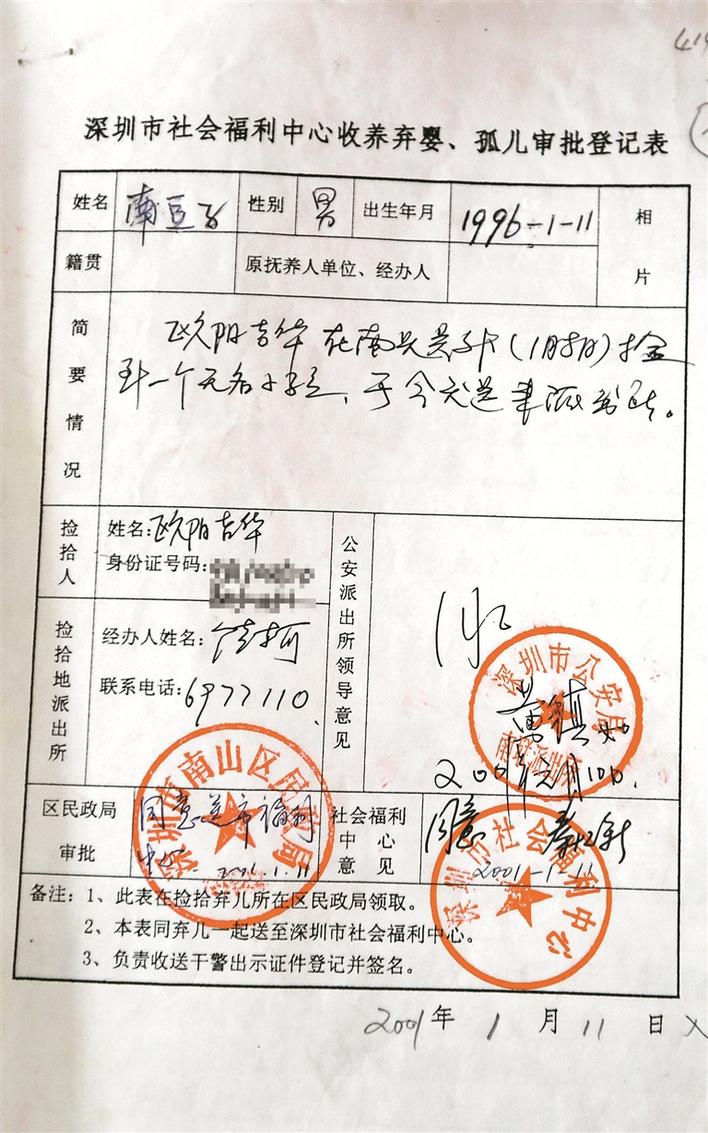 深圳市社会福利中心收养弃婴、孤儿审批登记表
姓名 南豆子 性别 男 出生年月 1996-1-11 相片
籍贯 原抚养人单位、经办人
简要情况
欧阳吉华在南
到一个无名小孩,于今天送来派出所。
捡拾人
姓名:欧阳吉华
身份证号码:
捡拾地派出所
经办人姓名:
联系电话:6977110.
公安派出所领导意见
深圳市公安局
区民政局审批
同意送市福利中心
2001.1.11
深圳市南山区民政局
社会福利中心意见
同意
2001-1-11
深圳市社会福利中心
备注:1、此表在捡拾弃儿所在区民政局领取。
2、本表同弃儿一起送至深圳市社会福利中心。
3、负责收送干警出示证件登记并签名。
2001年1月11日